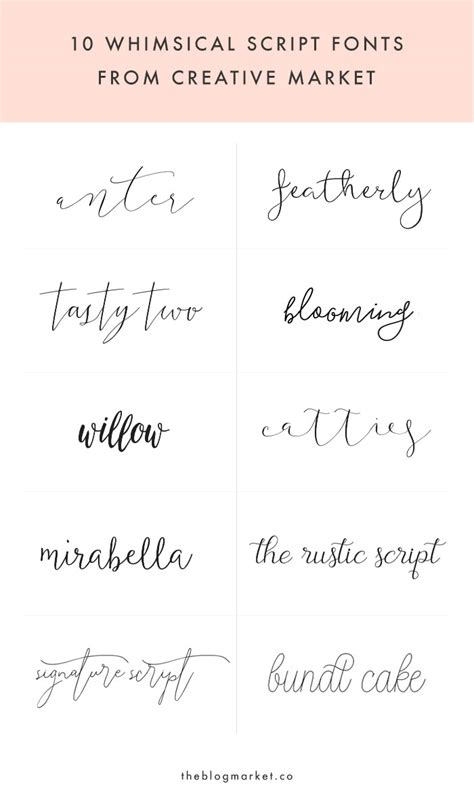 10 WHIMSICAL SCRIPT FONTS
FROM CREATIVE MARKET
anter
featherly
tasty two
blooming
willow
catties
mirabella
the rustic script
signature script
bundt cake
theblogmarket.co